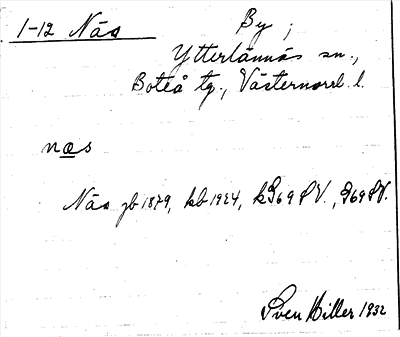 1-12 Näs
By;
Ytterlännäs sn.,
Boteå tg., Västernorrl. l.
næs
Näs jb 1879, kb 1924, k369SV., 369SV.
Sven Hiller 1932